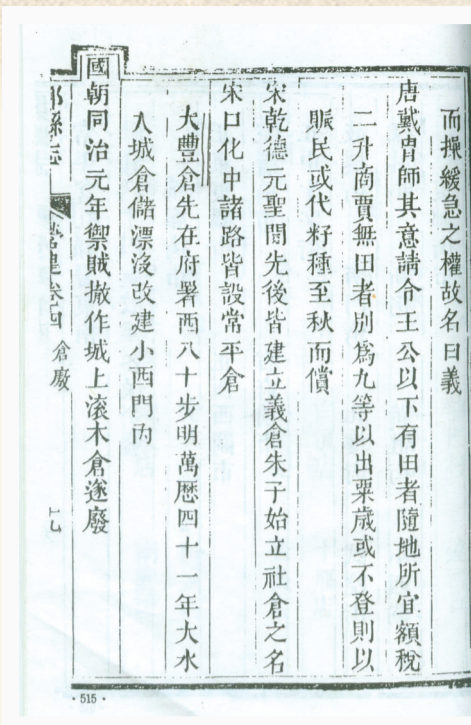 而操緩急之權故名曰義
唐戴胄師其意請令王公以下有田者隨地所宜額稅
二升商賈無田者別爲九等以出粟歲或不登則以
賑民或代籽種至秋而償
宋乾德元聖間先後皆建立義倉朱子始立社倉之名
宋口化中諸路皆設常平倉
大豐倉先在府署西八十步明萬歷四十一年大水
入城倉儲漂沒改建小西門內
國朝同治元年禦賊撤作城上滾木倉遂廢
縣志 卷四 倉廒 九
·515·